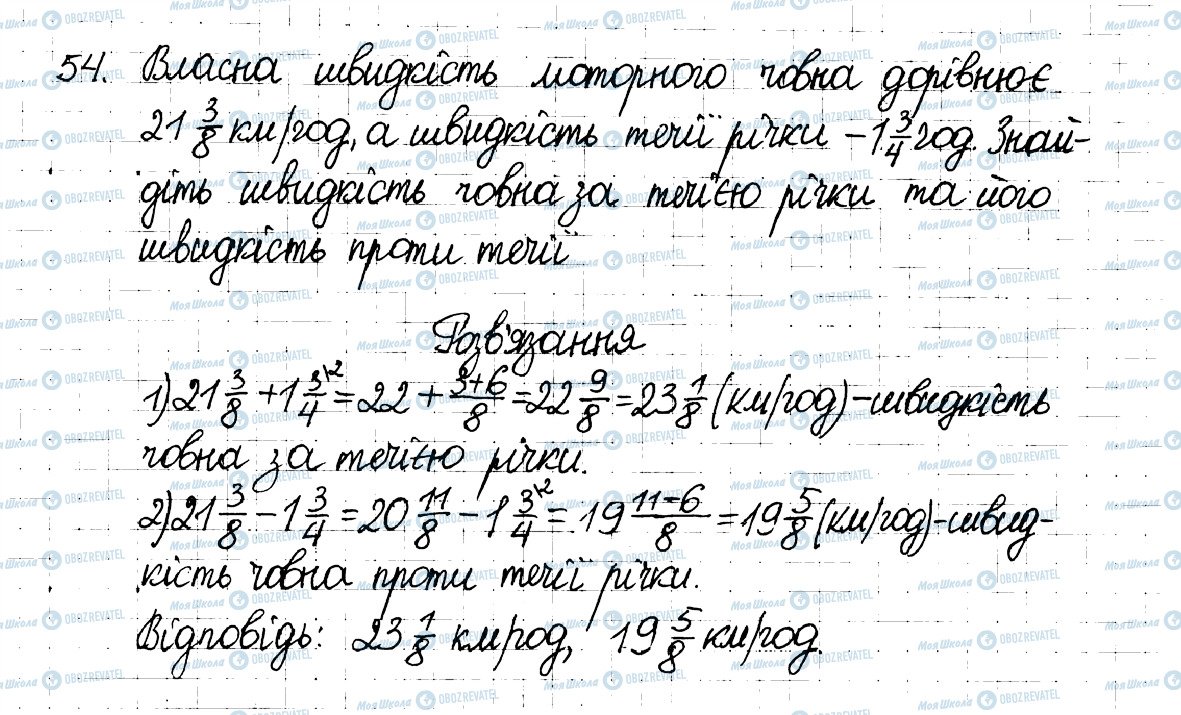 54. Власна швидкість моторного човна дорівнює
21 3/8 км/год, а швидкість течії річки – 1 3/4 год. Знай-
діть швидкість човна за течією річки та його
швидкість проти течії
Розв'язання
1) 21 3/8 + 1 3/4 |·2 = 22 + (3+6)/8 = 22 9/8 = 23 1/8 (км/год) – швидкість
човна за течією річки.
2) 21 3/8 – 1 3/4 = 20 11/8 – 1 3/4 |·2 = 19 (11–6)/8 = 19 5/8 (км/год) – швид-
кість човна проти течії річки.
Відповідь: 23 1/8 км/год, 19 5/8 км/год.
Моя Школа OBOZREVATEL